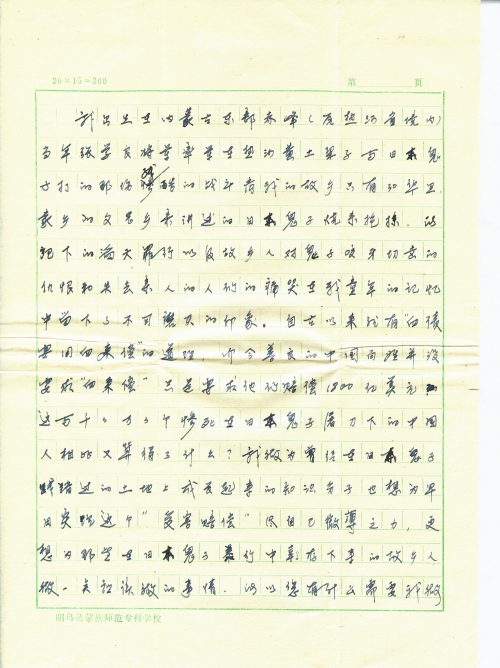 20×15=300 第 页
我出生在内蒙古东部赤峰（原热河省境内）
当年张学良将军率军在热河黄土梁子与日本鬼
子打的那场惨酷的战斗离我的故乡只有30华里
家乡的父老乡亲讲述的日本鬼子烧杀抢掠、
犯下的滔天罪行以及故乡人对鬼子咬牙切齿的
仇恨和失去亲人的人们的痛哭在我童年的记忆
中留下了不可磨灭的印象。自古以来就有“血债
要用血来偿”的道理，而今善良的中国同胞并没
要求“血来偿”只是要求他们赔偿1800亿美元
这与千千万万个惨死在日本鬼子屠刀下的中国
人相比又算得了什么？我做为曾经在日本鬼子
蹂踏过的土地上成长起来的知识分子也想为早
日实现这个“受害赔偿”尽自己微薄之力，更
想为那些在日本鬼子 中 存下来的故乡人
做一点应该做的事情。所以您有什么需要我做
昭乌达蒙族师范专科学校